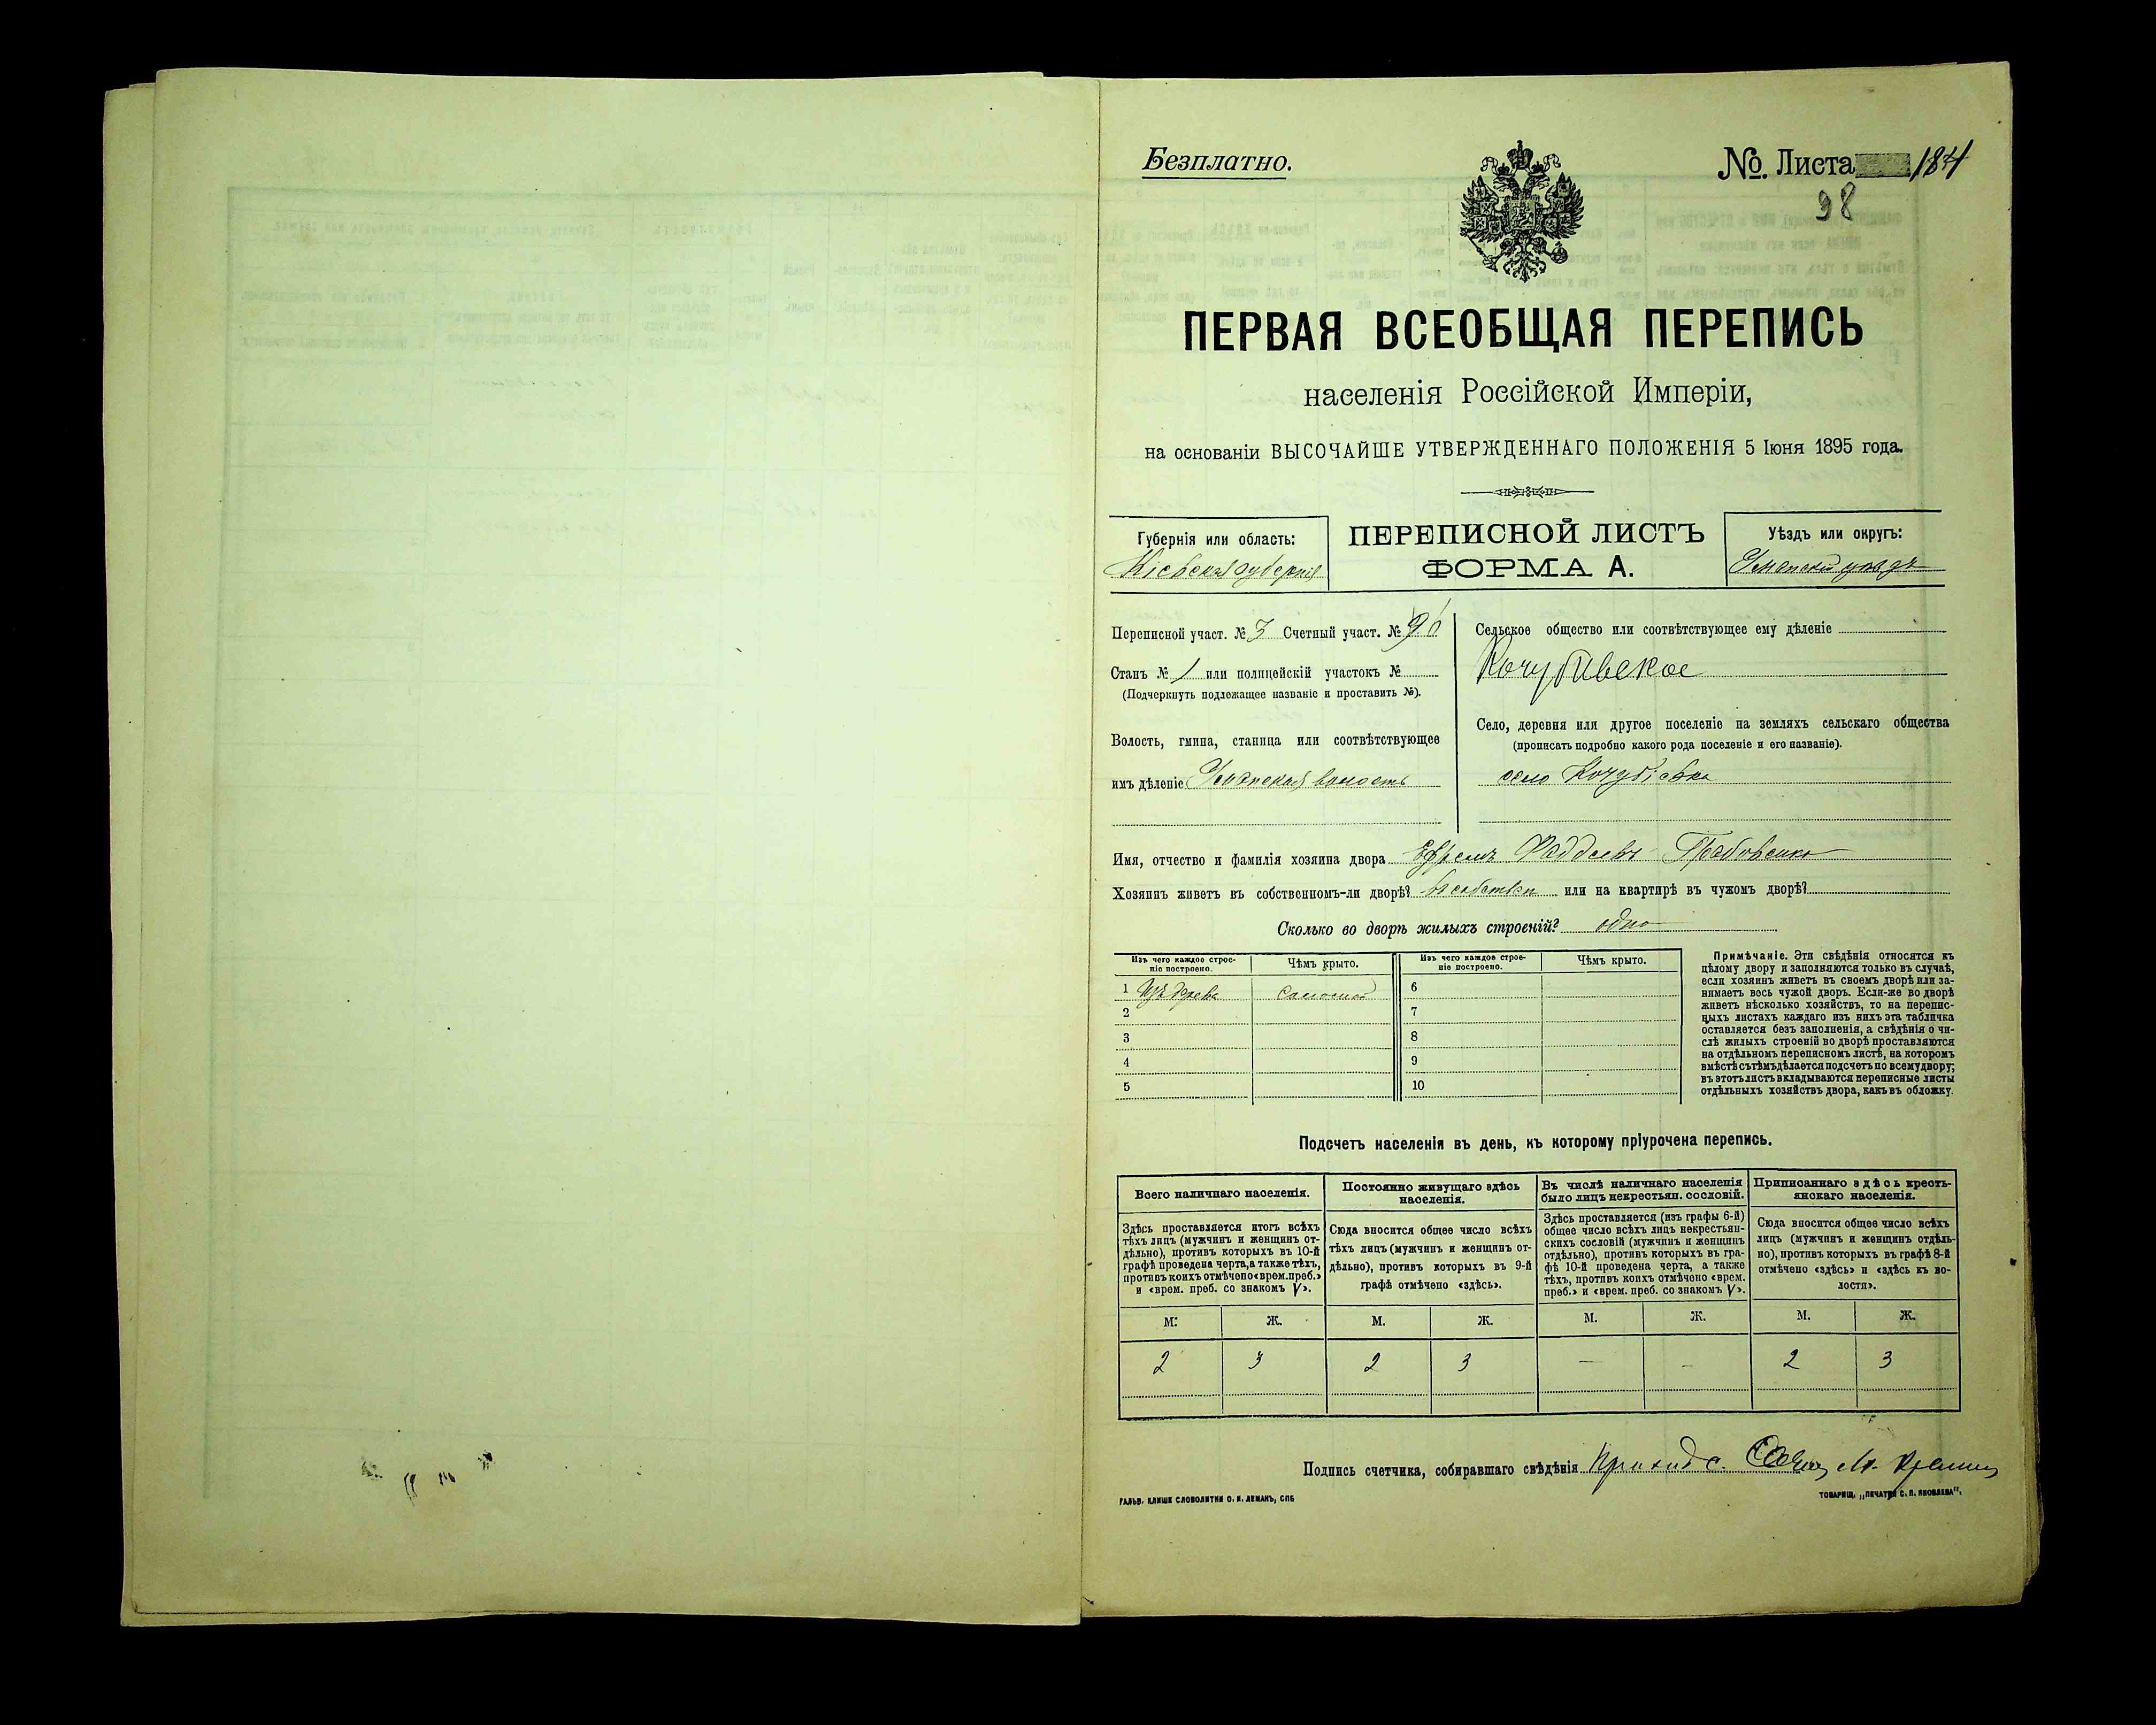 Безплатно.
№. Листа 184
98
ПЕРВАЯ ВСЕОБЩАЯ ПЕРЕПИСЬ
населенія Россійской Имперіи,
на основаніи ВЫСОЧАЙШЕ УТВЕРЖДЕННАГО ПОЛОЖЕНІЯ 5 Іюня 1895 года.
Губернія или область:
Кіевская губернія
ПЕРЕПИСНОЙ ЛИСТЪ
ФОРМА А.
Уѣздъ или округъ:
Уманскій уѣздъ
Переписной участ. № 3 Счетный участ. №
Станъ № 1 или полицейскій участокъ №
(Подчеркнуть подлежащее названіе и проставить №).
Волость, гмина, станица или соотвѣтствующее
имъ дѣленіе Уманская волость
Сельское общество или соотвѣтствующее ему дѣленіе
Кочубивское
Село, деревня или другое поселеніе на земляхъ сельскаго общества
(прописать подробно какого рода поселеніе и его названіе).
село Кочубіевка
Имя, отчество и фамилія хозяина двора Ефремъ Фаддеевъ Грабовенко
Хозяинъ живетъ въ собственномъ-ли дворѣ? или на квартирѣ въ чужомъ дворѣ?
Сколько во дворѣ жилыхъ строеній? одно
Изъ чего каждое строе-
ніе построено.
Чѣмъ крыто.
Изъ чего каждое строе-
ніе построено.
Чѣмъ крыто.
1 Изъ дерева соломой 6
2 7
3 8
4 9
5 10
Примѣчаніе. Эти свѣдѣнія относятся къ
цѣлому двору и заполняются только въ случаѣ,
если хозяинъ живетъ въ своемъ дворѣ или за-
нимаетъ весь чужой дворъ. Если-же во дворѣ
живетъ нѣсколько хозяйствъ, то на перепис-
ныхъ листахъ каждаго изъ нихъ эта табличка
оставляется безъ заполненія, а свѣдѣнія о чи-
слѣ жилыхъ строеній во дворѣ проставляются
на отдѣльномъ переписномъ листѣ, на которомъ
вмѣстѣ съ тѣмъ дѣлается подсчетъ по всему двору;
въ этотъ листъ вкладываются переписные листы
отдѣльныхъ хозяйствъ двора, какъ въ обложку.
Подсчетъ населенія въ день, къ которому пріурочена перепись.
Всего наличнаго населенія.
Здѣсь проставляется итогъ всѣхъ
тѣхъ лицъ (мужчинъ и женщинъ от-
дѣльно), противъ которыхъ въ 10-й
графѣ проведена черта, а также тѣхъ,
противъ коихъ отмѣчено «врем. преб.»
и «врем. преб. со знакомъ V».
Постоянно живущаго здѣсь
населенія.
Сюда вносится общее число всѣхъ
тѣхъ лицъ (мужчинъ и женщинъ от-
дѣльно), противъ которыхъ въ 9-й
графѣ отмѣчено «здѣсь».
Въ числѣ наличнаго населенія
было лицъ некрестьян. сословій.
Здѣсь проставляется (изъ графы 6-й)
общее число всѣхъ лицъ некрестьян-
скихъ сословій (мужчинъ и женщинъ
отдѣльно), противъ которыхъ въ гра-
фѣ 10-й проведена черта, а также
тѣхъ, противъ коихъ отмѣчено «врем.
преб.» и «врем. преб. со знакомъ V».
Приписаннаго здѣсь кресть-
янскаго населенія.
Сюда вносится общее число всѣхъ
лицъ (мужчинъ и женщинъ отдѣль-
но), противъ которыхъ въ графѣ 8-й
отмѣчено «здѣсь» и «здѣсь къ во-
лости».
М. Ж. М. Ж. М. Ж. М. Ж.
2 3 2 3 — — 2 3
Подпись счетчика, собиравшаго свѣдѣнія
ГАЛЬВ. КЛИШЕ СЛОВОЛИТНИ О. И. ЛЕМАНЪ, СПБ
ТОВАРИЩ. „ПЕЧАТНЯ С. П. ЯКОВЛЕВА".